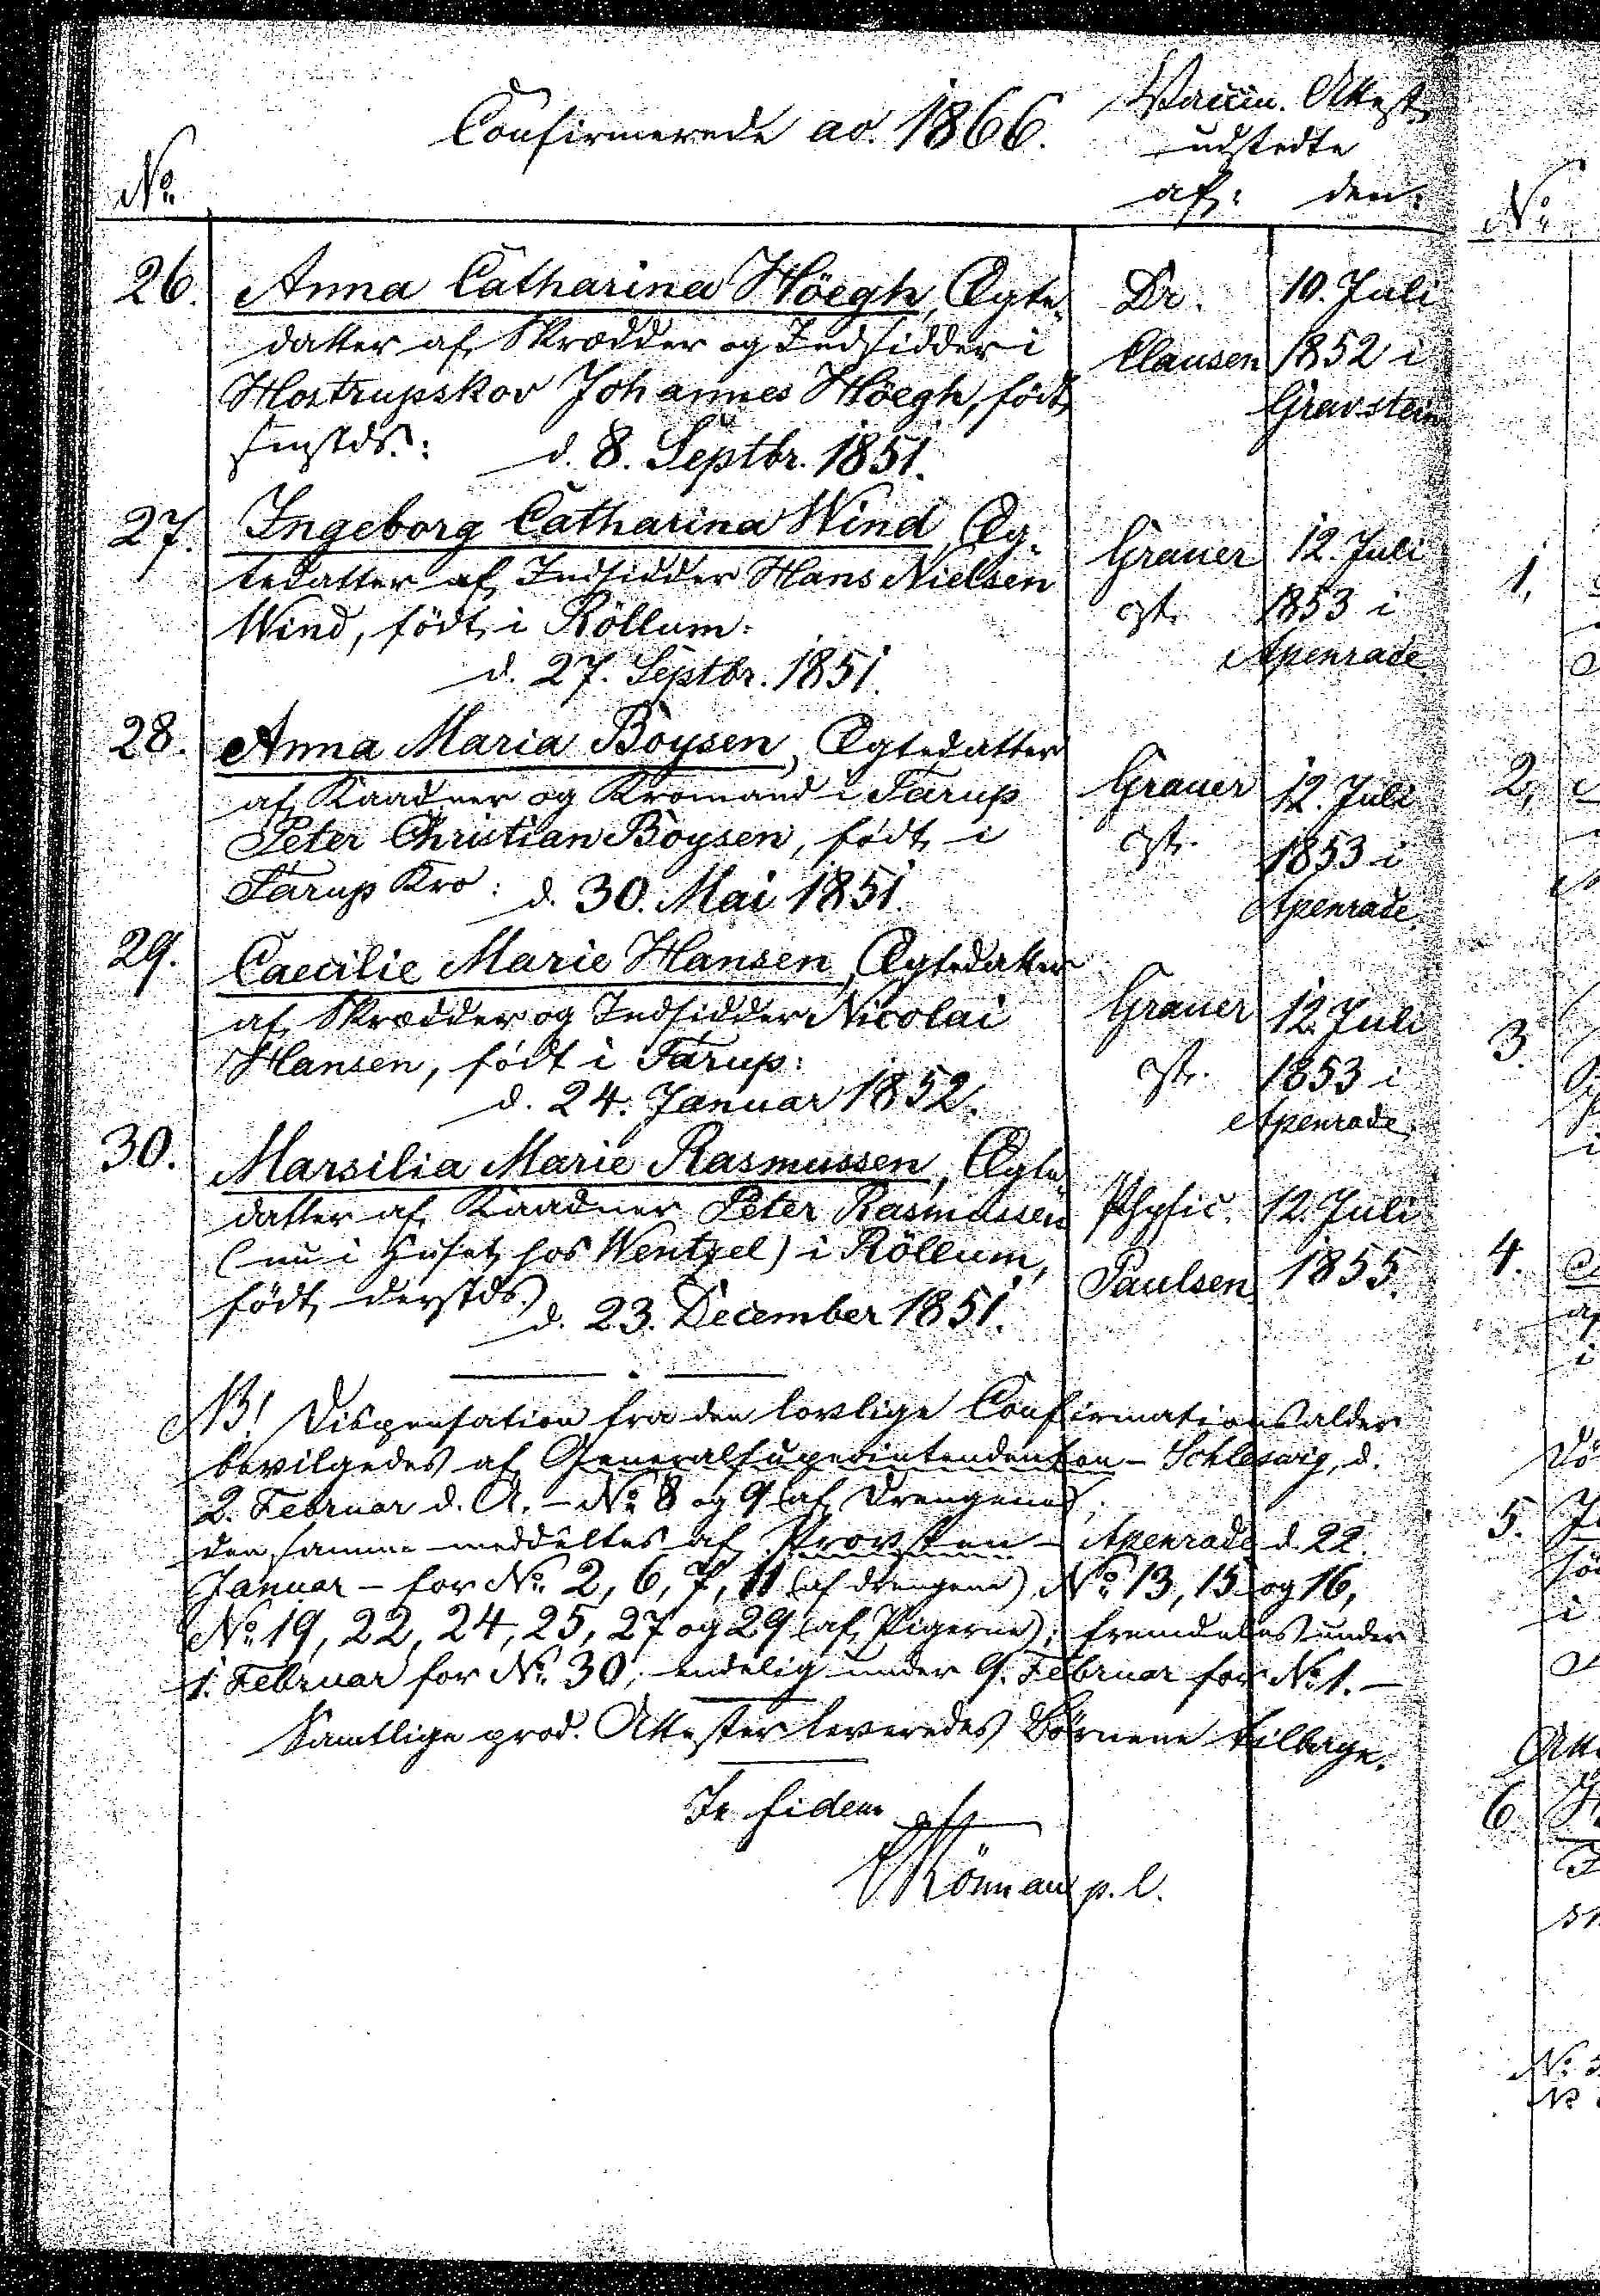 Confirmerede ao. 1866.
Vaccin. Attest
udstedte
af: den:
No.
26. Anna Catharina Höegh, Ægte-
datter af Skrædder og Indsidder i
Hostrupskov Johannes Höegh, født
sammestds.: d. 8. Septbr. 1851.
Dr. Clausen
10. Juli
1852 i
Gravstein
27. Ingeborg Catharina Wind, Æg-
tedatter af Indsidder Hans Nielsen
Wind, født i Röllum:
d. 27. Septbr. 1851.
Grauer
12. Juli
1853 i
Apenrade
28. Anna Maria Boysen, Ægtedatter
af Kaadner og Kromand i Tarup
Peter Christian Boysen, født i
Tarup Kro: d. 30. Mai 1851.
Grauer
12. Juli
1853 i
Apenrade
29. Caecilie Marie Hansen, Ægtedatter
af Skrædder og Indsidder Nicolai
Hansen, født i Tarup:
d. 24. Januar 1852.
Grauer
12. Juli
1853 i
Apenrade
30. Marsilia Marie Rasmussen, Ægte-
datter af Kaadner Peter Rasmussen
(nu i Huset hos Wentzel) i Röllum,
født derstds. d. 23. December 1851.
Physic.
Paulsen
12. Juli
1855.
NB! Dispensation fra den lovlige Confirmationsalder
bevilgedes af Generalsuperintendenten - Schleswig, d.
2. Februar d. A. - No. 8 og 9 (af Drengene);
den samme meddeltes af Provsten - Apenrade d. 22.
Januar - for No. 2, 6, 7, 11 (af Drengene), No. 13, 15 og 16,
No. 19, 22, 24, 25, 27 og 29 (af Pigerne); fremdeles under
1. Februar for No. 30; endelig under 9. Februar for No. 1. -
Samtlige prod. Attester leveredes Børnene tilbage.
In fidem
p. l.
No.
1,
2,
3.
4.
5.
6.